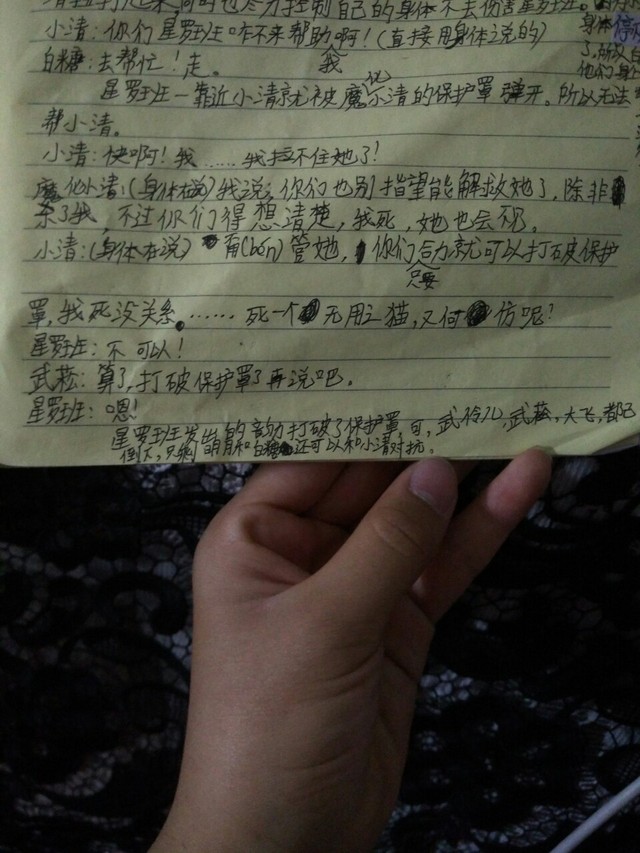 己的身体不去伤害星罗班。
身体停
小清:你们星罗班咋不来帮助啊!(直接用身体说的)
了,所以白
我
白糖:去帮忙!走。
他们身
化
星罗班一靠近小清就被魔小清的保护罩弹开。所以无法
帮小清。
小清:快啊!我……我拉不住她了!
魔化小清:(身体在说)我说,你们也别指望能解救她了,除非
杀了我,不过你们得想清楚,我死,她也会死。
小清:(身体在说)甭(bén)管她,你们合力就可以打破保护
只要
罩,我死没关系。……死一个无用之猫,又何伤呢?
星罗班:不可以!
武崧:算了,打破保护罩了再说吧。
星罗班:嗯!
星罗班发出的韵力打破了保护罩,可,武伶儿,武崧,大飞,都已
倒下,只剩白糖还可以和小清对抗。